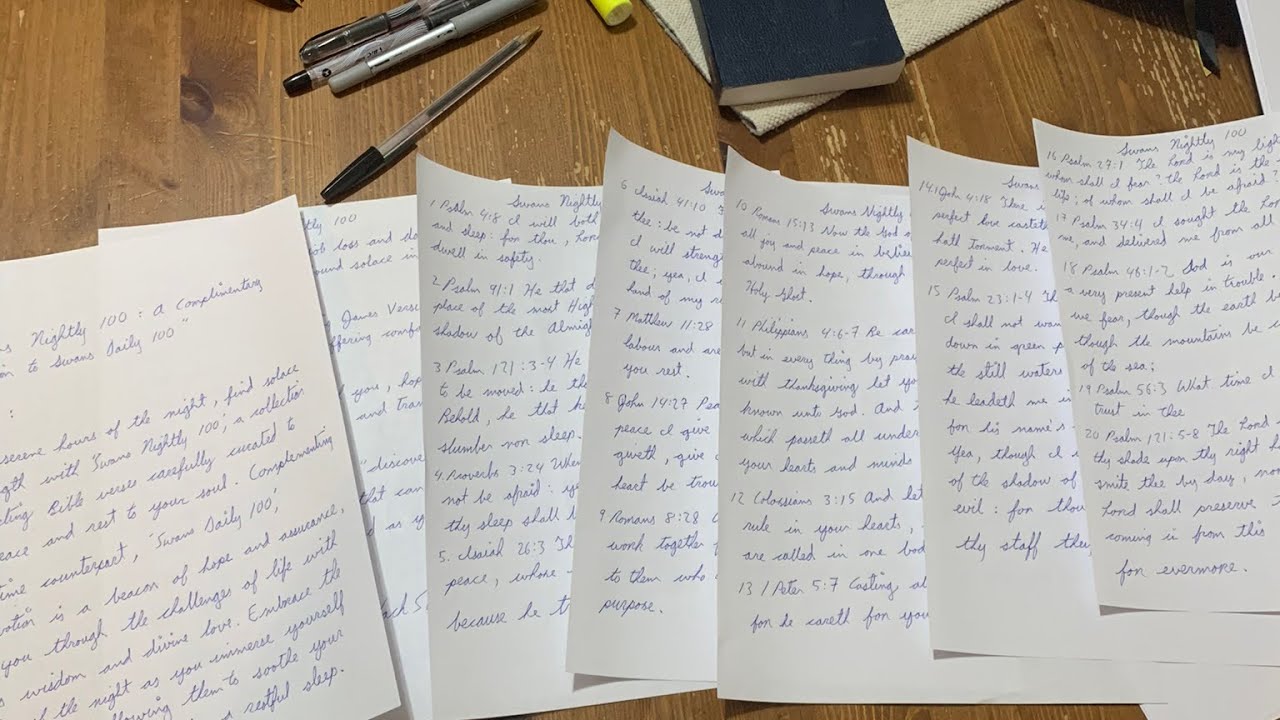 Nightly 100 : A Complimenting
to Swans Daily 100"
:
serene hours of the night, find solace
with "Swans Nightly 100", a collection
Bible verses carefully curated to
and rest to your soul. Complementing
counterpart, "Swans Daily 100",
is a beacon of hope and assurance,
you through the challenges of life with
wisdom and divine love. Embrace the
the night as you immerse yourself
them to soothe your
restful sleep.
100
loss and
solace in
James
offering
you,
and
"discover
that can
as
Swans Nightly
1 Psalm 4:8 I will both
and sleep: for thou, Lord
dwell in safety.
2 Psalm 91:1 He that
place of the most High
shadow of the
3 Psalm 121:3-4 He
to be moved: he
Behold, he that
slumber non sleep.
4. Proverbs 3:24 When
not be afraid:
thy sleep shall
5. Isaiah 26:3
peace, whose
because he
6 Isaiah 41:10
thee: be not
I will
thee; yea, I
hand of my
7 Matthew 11:28
labour and are
you rest.
8 John 14:27
peace I give
giveth, give
heart be
9 Romans 8:28
work together
to them who
purpose.
Swans Nightly
10 Romans 15:13 Now the God
all joy and peace in
abound in hope, through
Holy Ghost.
11 Philippians 4:6-7 Be
but in every thing by
with thanksgiving let
known unto God. And
which passeth all
your hearts and minds
12 Colossians 3:15 And let
rule in your hearts,
are called in one
13 1 Peter 5:7 Casting
for he careth for you
Swans
14 1 John 4:18
perfect love
hath Torment. He
perfect in love.
15 Psalm 23:1-4
I shall not
down in green
the still waters
he leadeth me
for his name's
yea, though I
of the shadow of
evil: for thou
thy staff they
Swans Nightly 100
16 Psalm 27:1 The Lord is my
whom shall I fear? the Lord is the
life; of whom shall I be afraid?
17 Psalm 34:4 I sought the
me, and delivered me from all
18 Psalm 46:1-2 God is our
a very present help in trouble.
we fear, though the earth
though the mountains be
of the sea;
19 Psalm 56:3 What time I
trust in thee
20 Psalm 121:5-8 The Lord
thy shade upon thy right
smite thee by day,
Lord shall preserve
coming in from this
for evermore.